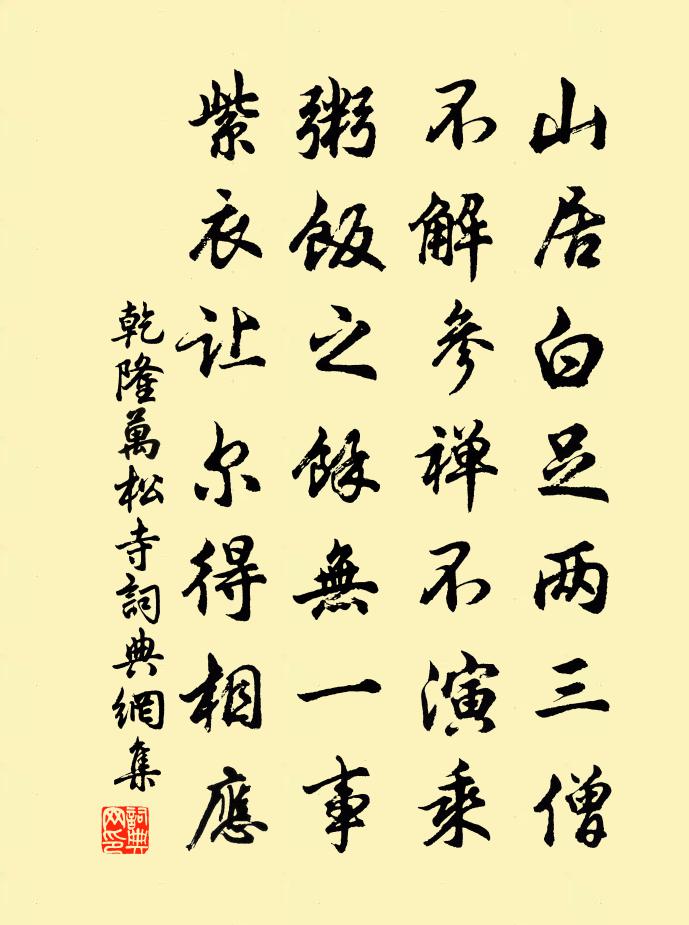 山居白足两三僧
不解參禅不演乘
粥飯之餘無一事
紫衣让尔得相應
乾隆萬松寺詞典網集
詞典网印